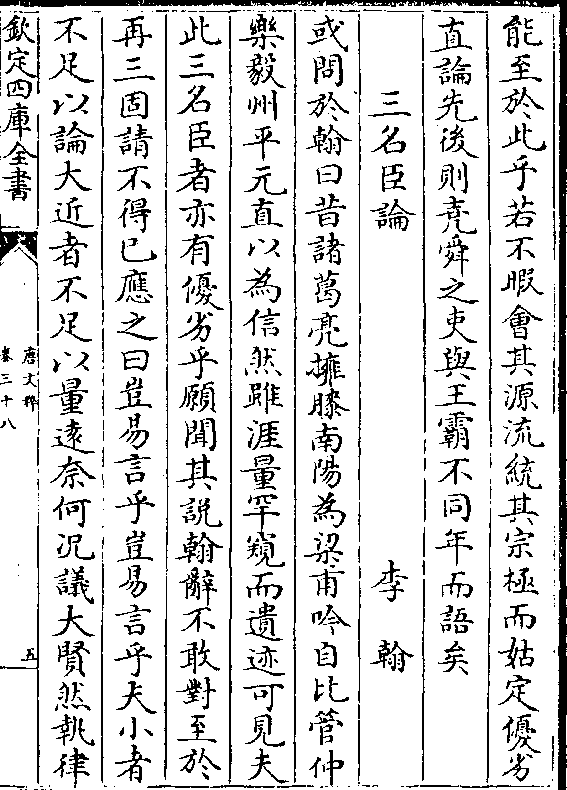 能至於此乎若不暇會其源流統其宗極而姑定優劣
直論先後則堯舜之吏與王霸不同年而語矣
三名臣論 李翰
或問於翰曰昔諸葛亮擁膝南陽為梁甫吟自比管仲
樂毅州平元直以為信然雖涯量罕窺而遺迹可見夫
此三名臣者亦有優劣乎願聞其説翰辭不敢對至於
再三固請不得已應之曰豈易言乎豈易言乎夫小者
不足以論大近者不足以量逺奈何況議大賢然執律
欽定四庫全書
唐文粹
卷三十八
五